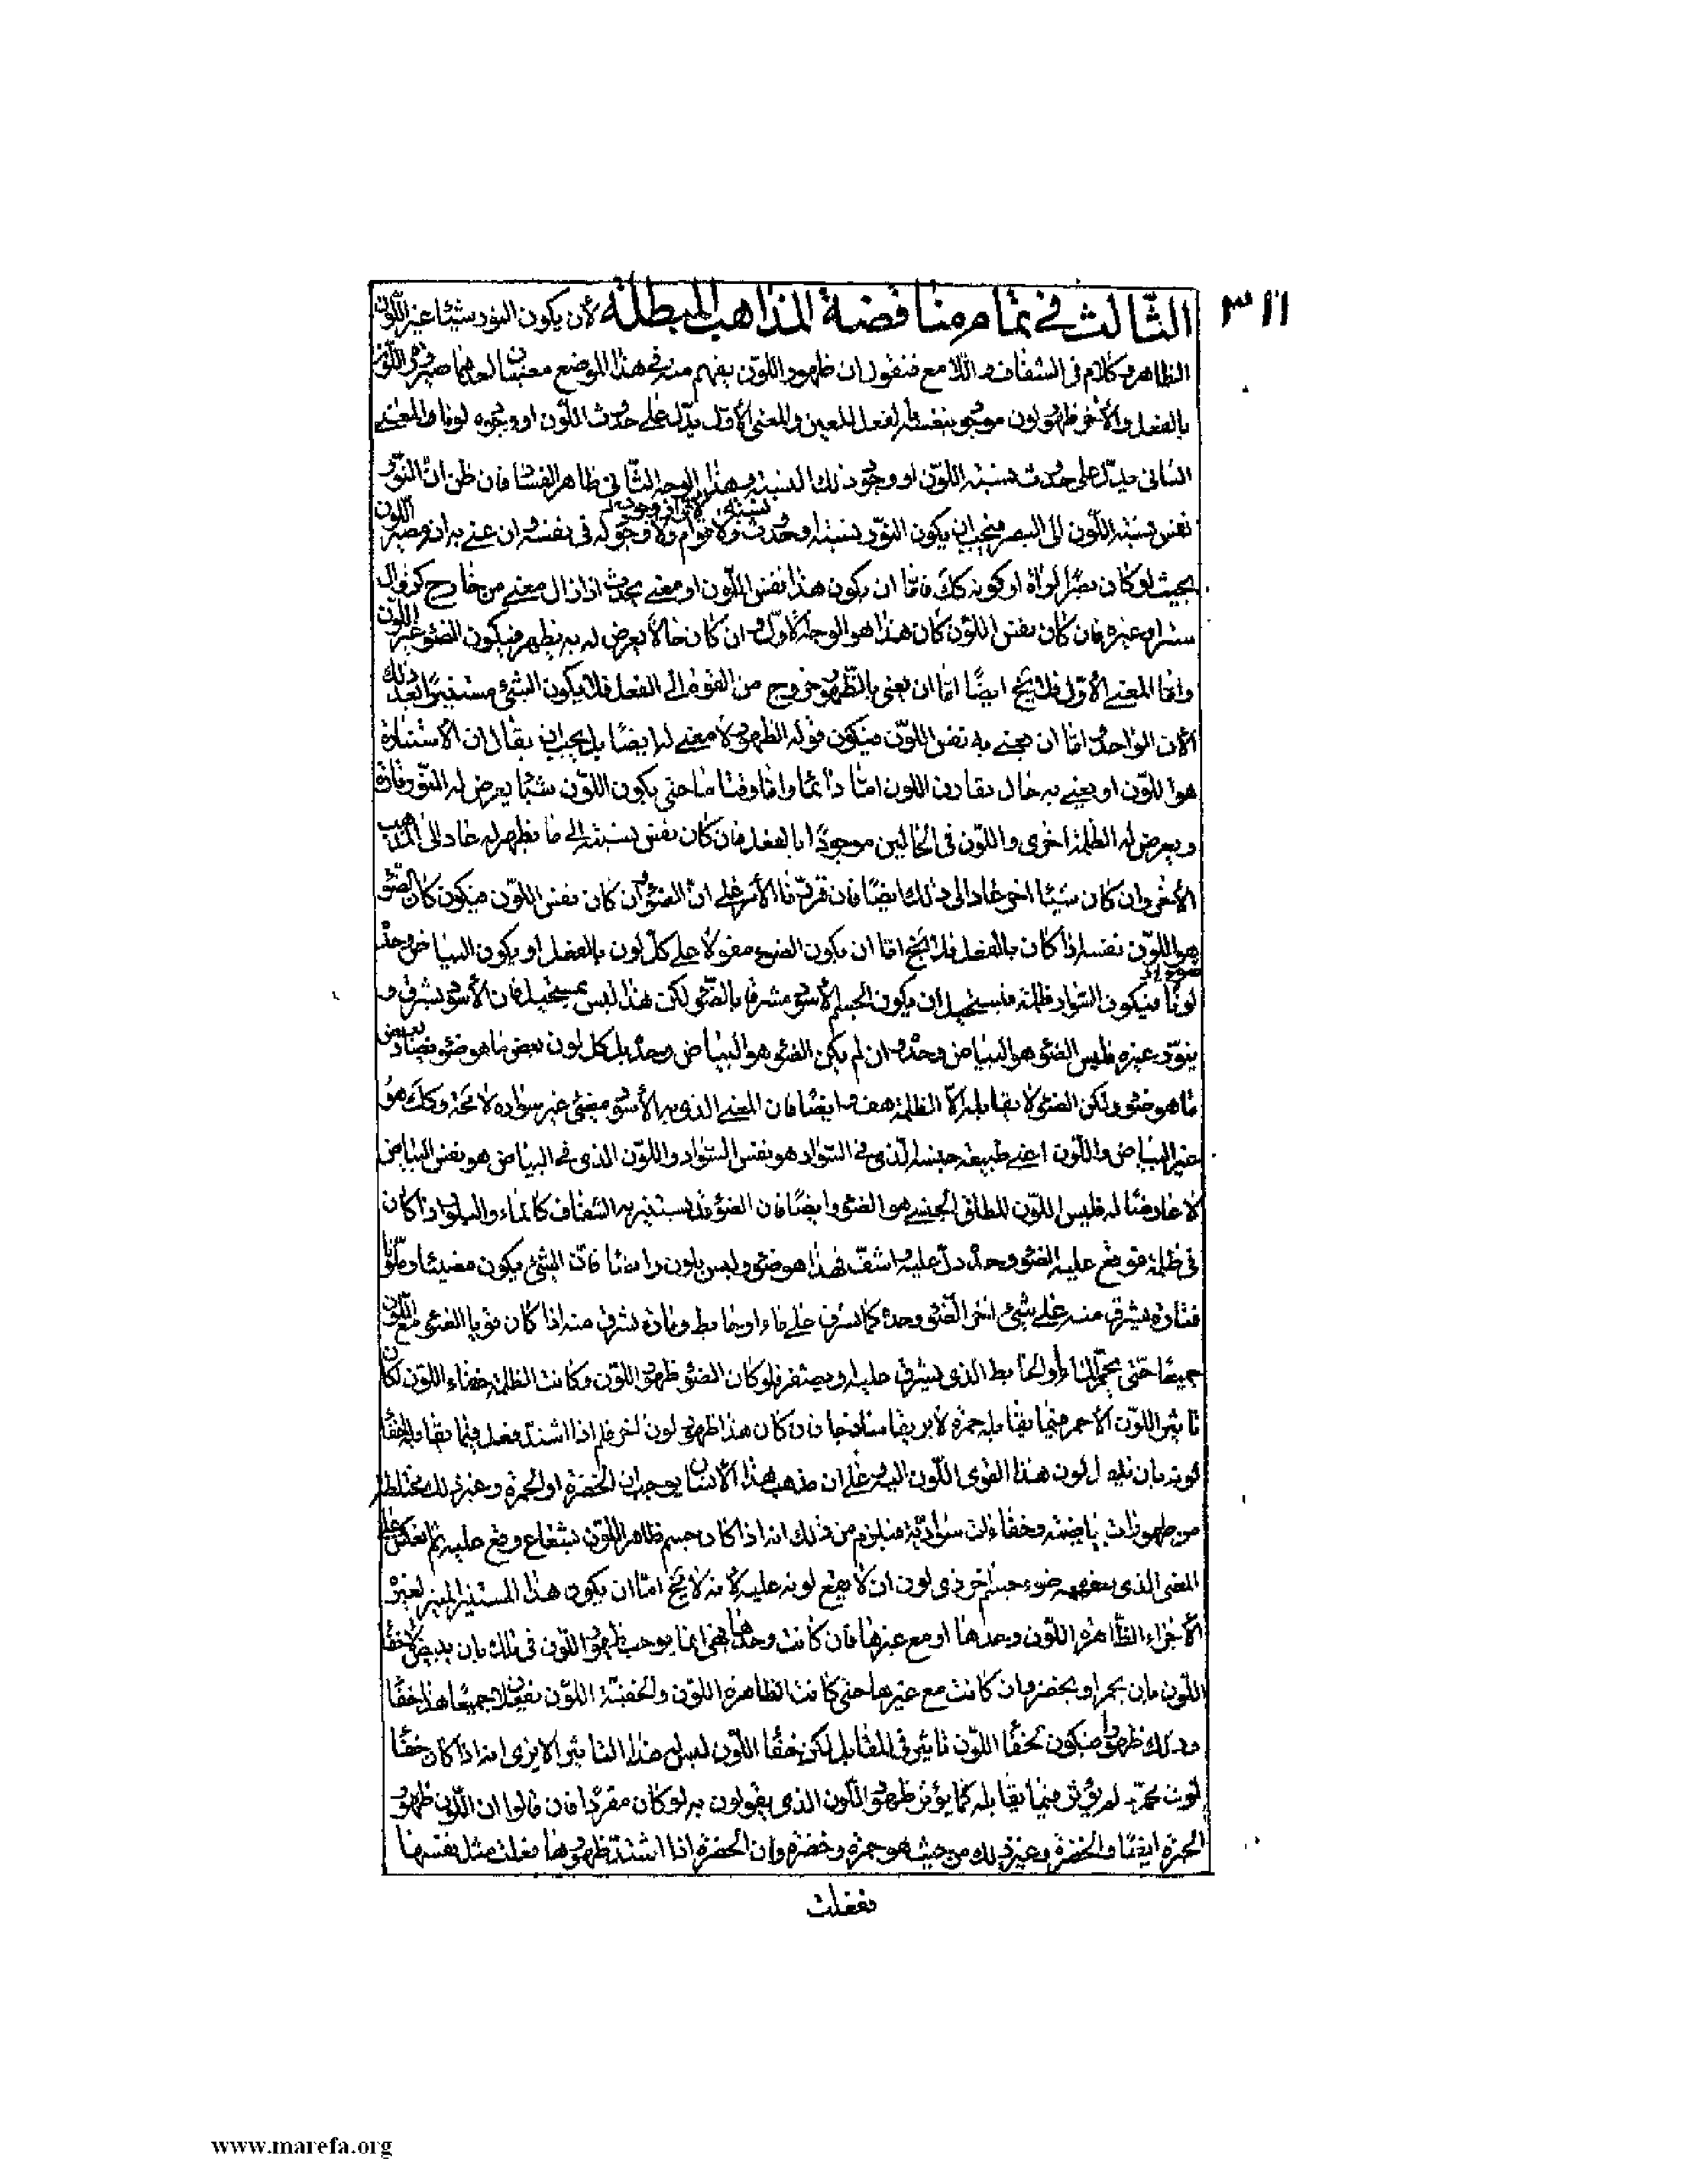 ٣١١
الثالث في تمام مناقضة المذاهب المبطلة لأن يكون النور شيئا غير اللون
الظاهر وكلام في الشفاف واللامع فنقول ان ظهور اللون يفهم منه في هذا الموضع معنيان احدهما صيرورة اللون
بالفعل والأخر ظهور لون موجود بنفسه بالفعل للعين والمعنى الأول يدل على حدوث اللون او وجوده لونا والمعنى
الثاني يدل على حدوث نسبة اللون او وجود تلك النسبة وهذا الوجه الثاني ظاهر الفساد فان ظن ان النور
نفس نسبة اللون الى البصر فيجب ان يكون النور نسبة او حدوث نسبة ولا قوام ولا وجود له في نفسه وان عنى به انه مصير اللون
بحيث لو كان بصرا لراه او كونه كك فاما ان يكون هذا نفس اللون او معنى يحدث اذا زال معنى من خارج كزوال
ستر او غيره فان كان نفس اللون كان هذا هو الوجه الأول وان كان حالا يعرض له به يظهر فيكون الضوء غير اللون
واما المعنى الأول فلا يخ ايضا اما ان يعنى بالظهور خروج من القوة الى الفعل فلا يكون الشئ مستنيرا بعد ذلك
الآن الواحد اما ان يعنى به نفس اللون فيكون قوله الظهور لا معنى له ايضا بل يجب ان يقال ان الاستنارة
هو اللون او يعنى به حال يقارن اللون اما دائما واما وقتا ما حتى يكون اللون شيئا يعرض له النور تارة
ويعرض له الظلمة اخرى واللون في الحالين موجودا بالفعل فان كان نفس نسبته الى ما يظهر له عاد الى المذهب
الأخر وان كان شيئا اخر عاد الى ذلك ايضا فان قررنا الأمر على ان الضوء ان كان نفس اللون فيكون كان الضوء
هو اللون نفسه اذا كان بالفعل فلا يخ اما ان يكون الضوء مقولا على كل لون بالفعل او يكون البياض وحده
لونا فيكون السواد ظلمة فيستحيل ان يكون الجسم الأسود مشرقا بالضوء لكن هذا ليس بمستحيل فان الأسود يشرق و
ينور غيره فليس الضوء هو البياض وحده وان لم يكن الضوء هو البياض وحده بل كل لون بعض ما هو ضوء يضاد بعض
ما هو ضوء ولكن الضوء لا يقابله الا الظلمة هف وايضا فان المعنى الذي به الأسود مضئ غير سواده لا محة وكك هو
غير البياض واللون اعنى طبيعة جنسه الذي في السواد هو نفس السواد واللون الذي في البياض هو نفس البياض
لا عارضا له فليس اللون المطلق الجنسي هو الضوء وايضا فان الضوء قد يستنير به الشفاف كالماء والبلور اذا كان
في ظلمة فوقع عليه الضوء وحده دل عليه واشف فهذا هو ضوء وليس بلون وايضا فان الشئ يكون مضيئا وملونا
فتارة يشرق منه على شئ اخر الضوء وحده كما يشرق على ماء او حايط وتارة يشرق منه اذا كان قويا الضوء مع اللون
جميعا حتى يحمر الماء او الحايط الذي يشرق عليه او يصفر فلو كان الضوء ظهور اللون وكانت الظلمة خفاء اللون لكان
تاثير اللون الأحمر فيما يقابله حمرة لا بريقا ساذجا فان كان هذا ظهور لون اخر فلم اذا اشتد فعل فيما يقابله خفاء
لونه بان ينقل لون هذا القوى اللون اليه على ان مذهب هذا الانسان يوجب ان الخضرة او الحمرة وغير ذلك مختلط
من ظهورات بياضية وخفاءات سوادية فيلزم من ذلك انه اذا كان جسم ظاهر اللون بشعاع وقع عليه ثم انعكس عليه
المعنى الذي نعرفه ضوء جسم اخر ذي لون ان لا يقع لونه عليه لانه لا يخ اما ان يكون هذا المستنير المنير لغيره
الأجزاء الظاهرة اللون وحدها او مع غيرها فان كانت وحدها فهي انما يوجب ظهور اللون في تلك بان يبيض لاخفاء
اللون بان يحمر او يخضر وان كانت مع غيرها حتى كانت الظاهرة اللون والخفية اللون يفعلان جميعا هذا خفاء
وذلك ظهور فيكون لخفاء اللون تاثير في المقابل لكن خفاء اللون ليس له هذا التاثير الا يرى انه اذا كان خفاء
لون محر لم يؤثر فيما يقابله كما يؤثر ظهور اللون الذي يقولون به لو كان مفردا فان قالوا ان اللون ظهور
الحمرة ايضا والخضرة وغير ذلك من حيث هو حمرة وخضرة وان الحمرة اذا اشتد ظهورها فعلت مثل نفسها
ففعلت
www.marefa.org